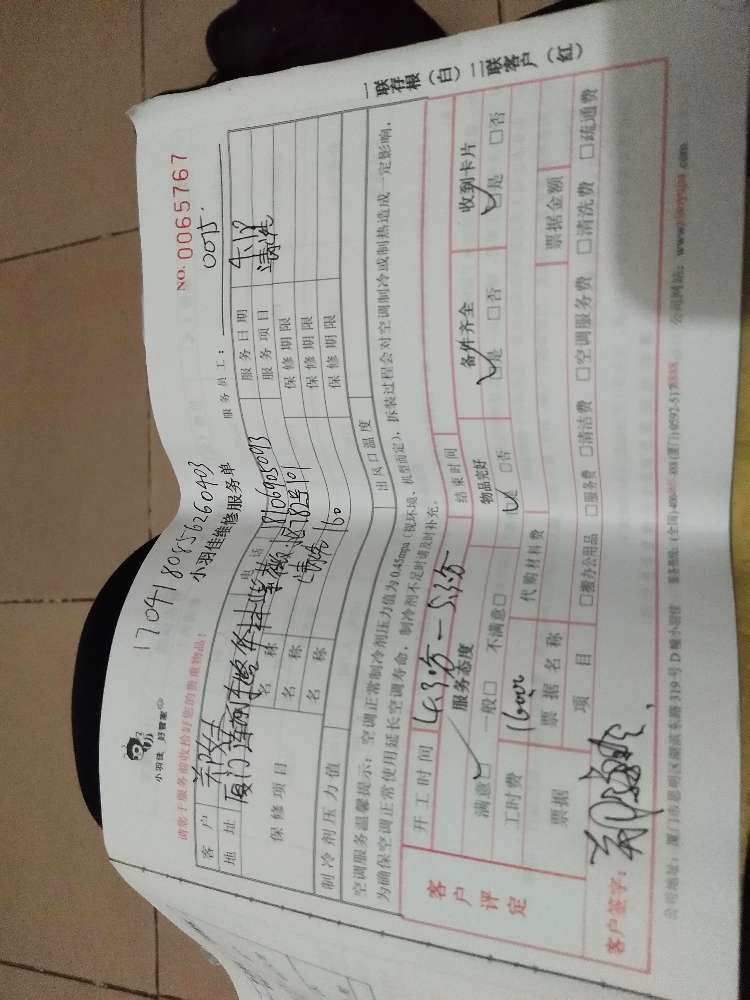 170418085626040​3
小羽佳 好管家
NO. 0065767
小羽佳维修服务单
请您于服务前收拾好您的贵重物品:
服务员工: 0075
客户 电话 18106905093 服务日期 4.18
地址 厦门 服务项目 清洗
保修项目 名称 清洗 160 保修期限
名称 保修期限
名称 保修期限
制冷剂压力值 出风口温度
空调服务温馨提示:空调正常制冷剂压力值为0.45mpa(视环境、机型而定),拆装过程会对空调制冷或制热造成一定影响,
为确保空调正常使用延长空调寿命,制冷剂不足时请及时补充。
客户评定
开工时间 结束时间
服务态度 物品完好 备件齐全 收到卡片
满意□ 一般□ 不满意□ □是 □否 □是 □否 □是 □否
工时费 代购材料费
票据 票据名称 票据金额
项目 □搬办公用品 □服务费 □清洁费 □空调服务费 □清洗费 □疏通费
客户签字:
公司地址:厦门市思明区湖滨东路319号D幢小羽佳
公司网站:
一联存根(白)二联客户(红)